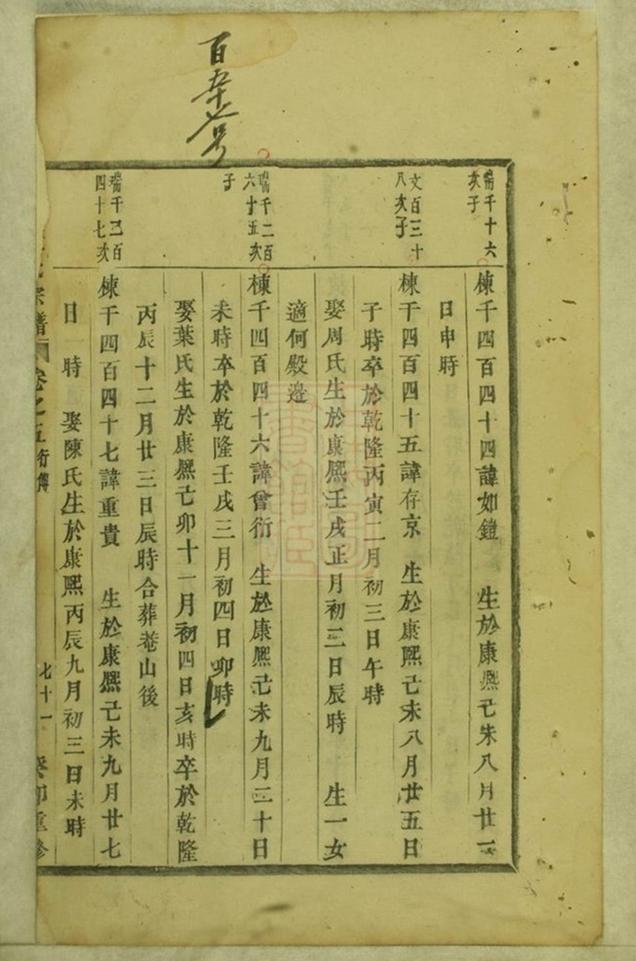 百
號
瑞千十六
次子
棟千四百四十四諱如鎧 生於康熈己未八月廿三
日申時
文百三十
八次子
棟千四百四十五諱存京 生於康熈己未八月廿五日
子時卒於乾隆丙寅二月初三日午時
娶周氏生於康熈壬戌正月初三日辰時 生一女
適何殿邉
瑞千二百
六十五次
子
棟千四百四十六諱會衍 生於康熈己未九月三十日
未時卒於乾隆壬戌三月初四日卯時
娶葉氏生於康熈己卯十一月初四日亥時卒於乾隆
丙辰十二月廿三日辰時合葬菴山後
瑞千三百
四十七次
棟千四百四十七諱重貴 生於康熈己未九月廿七
日 時 娶陳氏生於康熈丙辰九月初三日未時
宗譜 卷之五行傳 七十一 癸卯重修